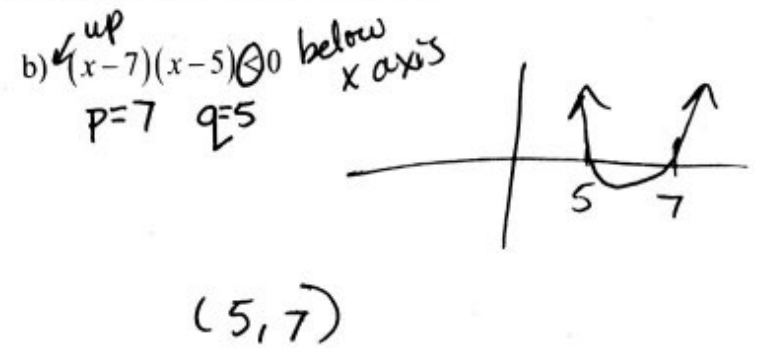 up
b) (x-7)(x-5)<0 below
x axis
p=7 q=5
5 7
(5,7)